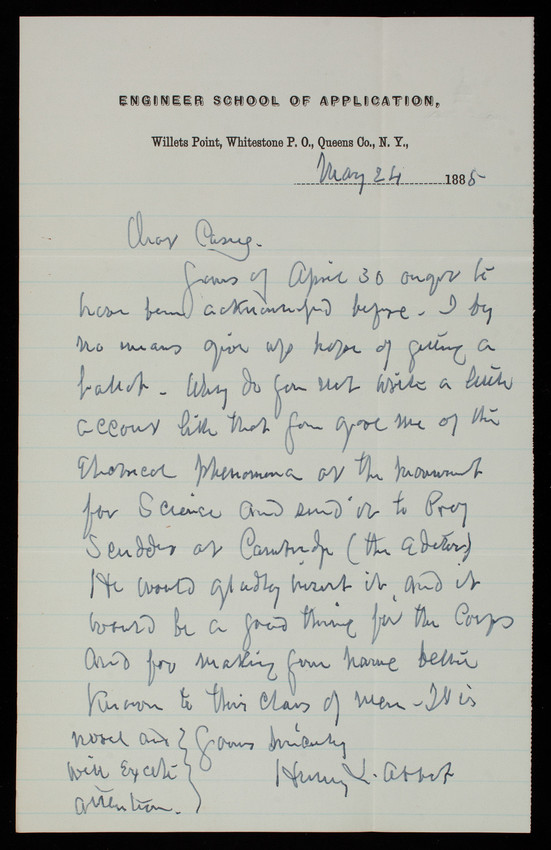 ENGINEER SCHOOL OF APPLICATION,
Willets Point, Whitestone P. O., Queens Co., N. Y.,
May 24 1885
Dear Casey.
Yours of April 30 ought to
have been acknowledged before. I by
no means give up hope of getting a
ballot. Why do you not write a little
account like that you gave me of the
Electrical phenomena at the monument
for Science and send it to Prof
Scudder at Cambridge (the Editor)
He would gladly insert it, and it
would be a good thing for the Corps
and for making your name better
known to this class of men - It is
novel and
will excite
attention.
Yours sincerely
Henry L. Abbot